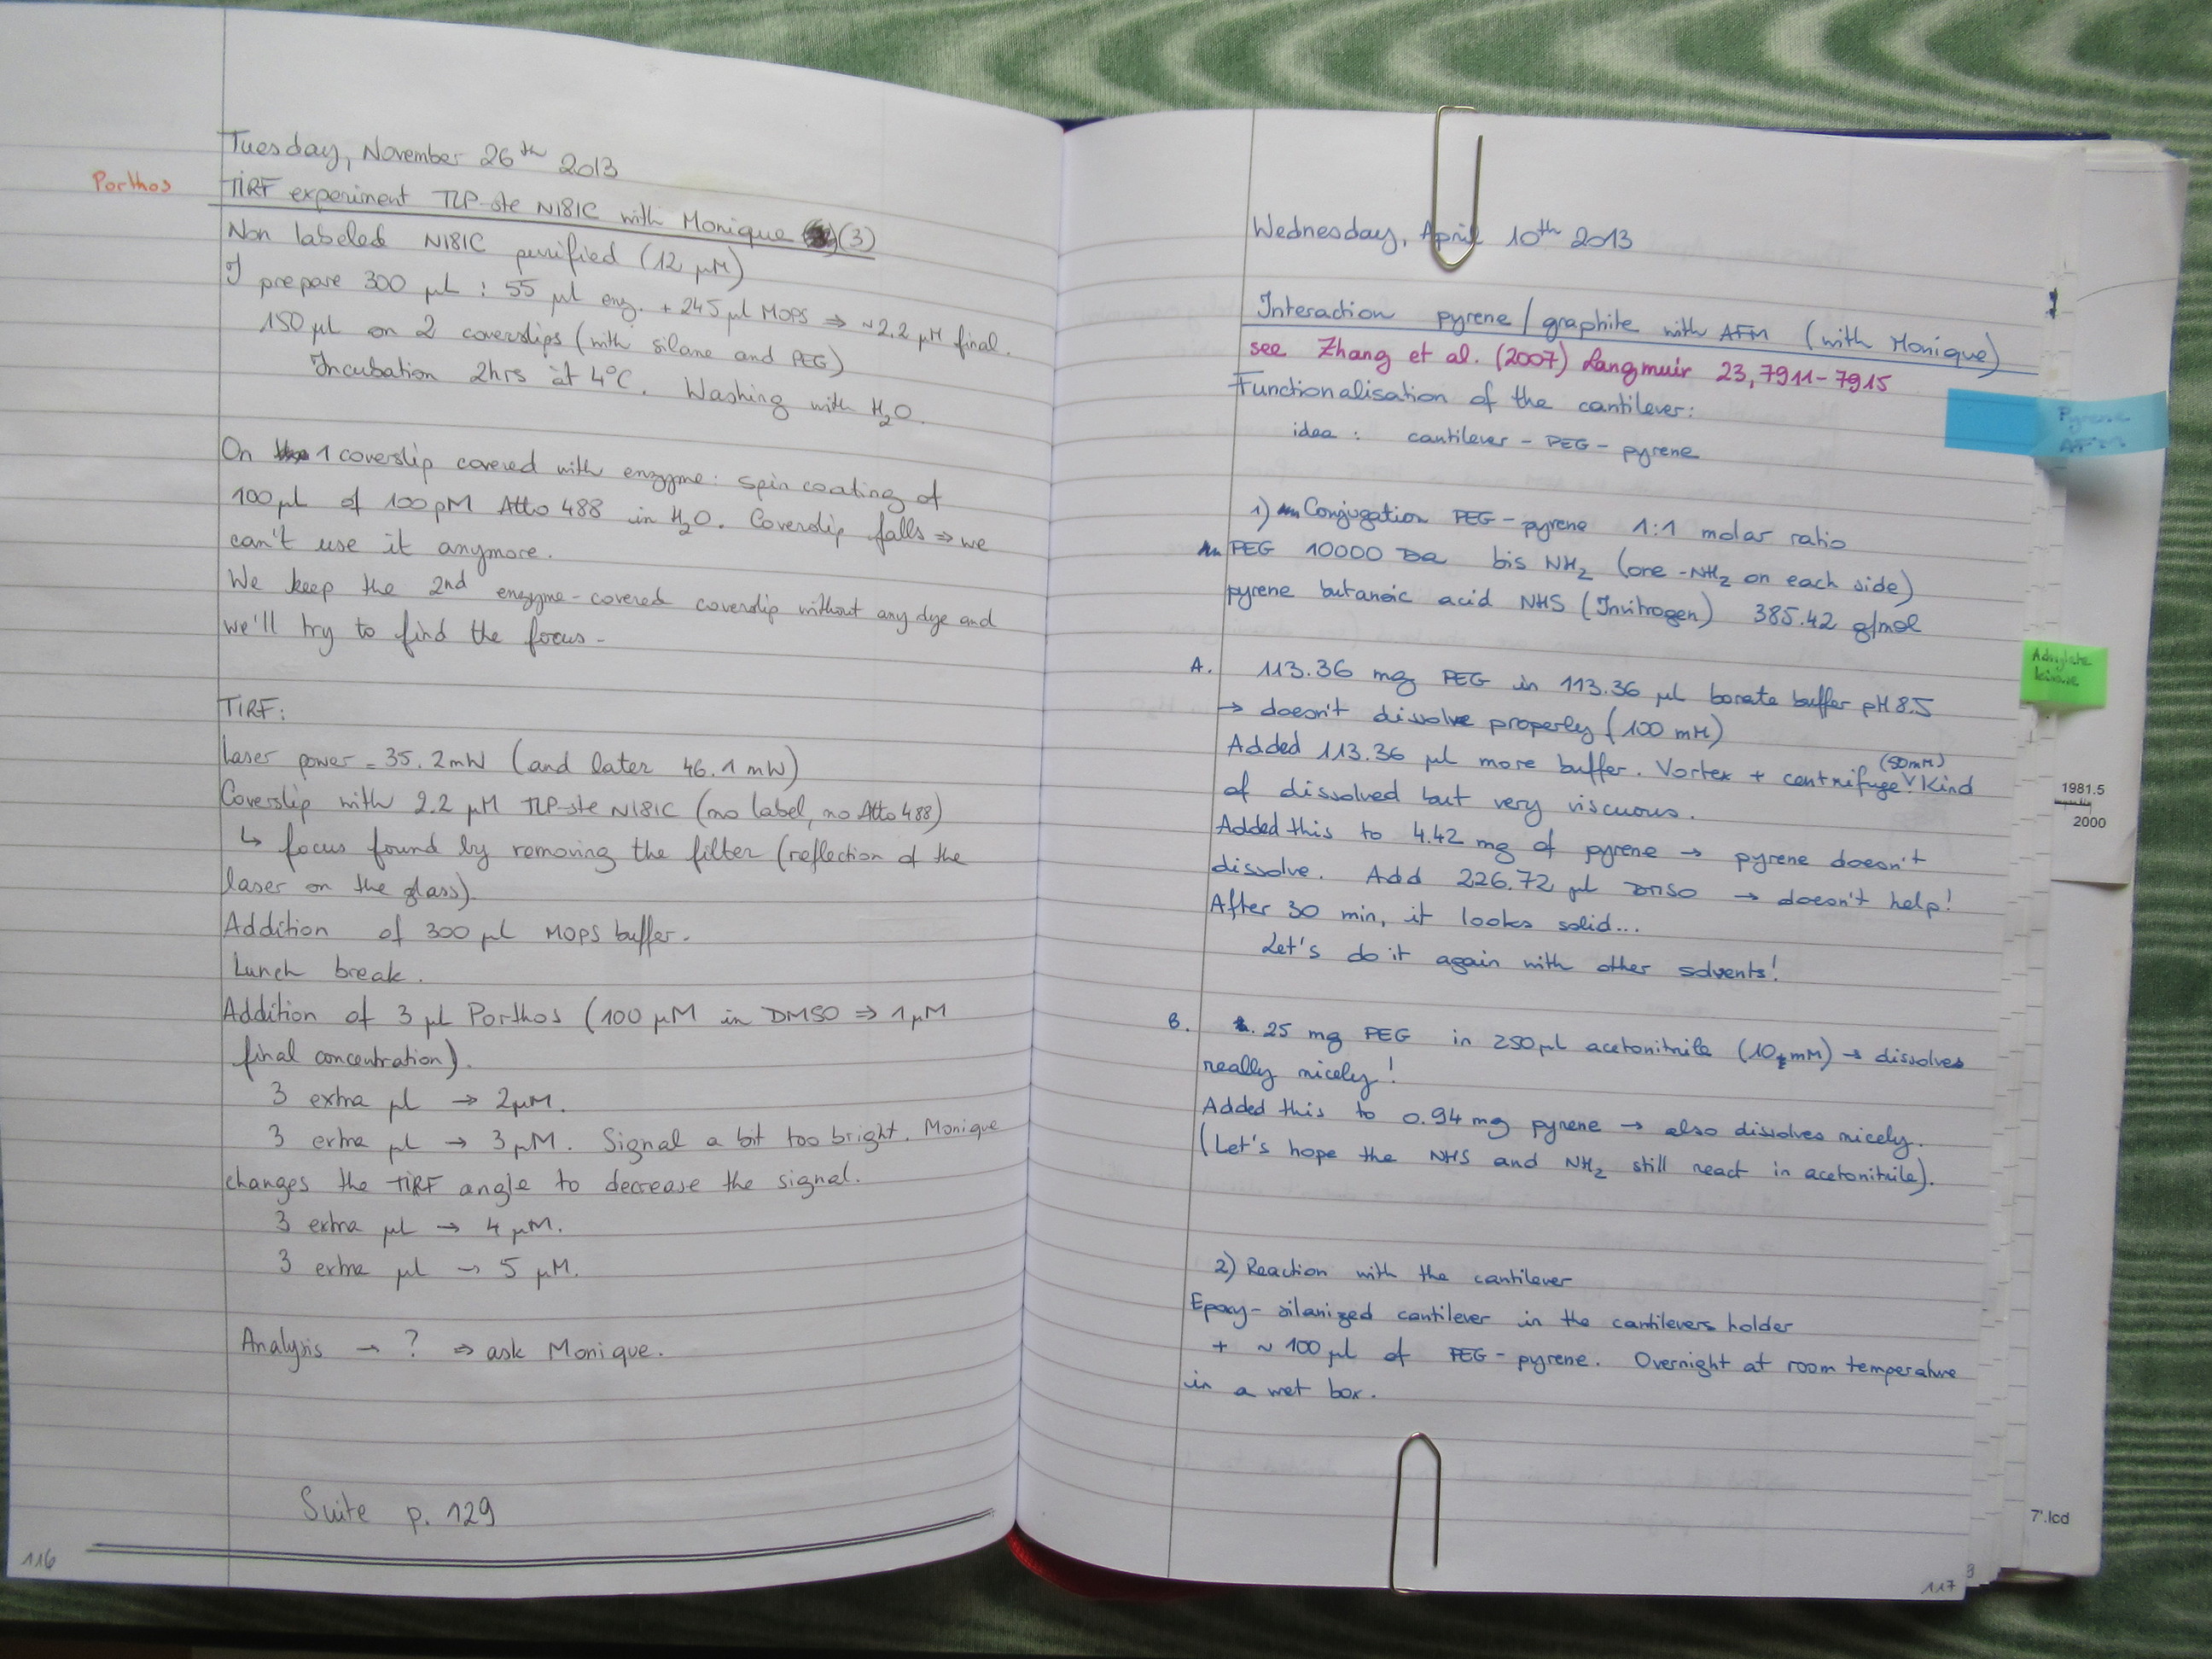 Tuesday, November 26th 2013
Porthos
TIRF experiment TLP-ste N181C with Monique (3)
Non labeled N181C purified (12 µM)
I prepare 300 µl : 55 µl enz. + 245 µl MOPS ⇒ ~2.2 µM final.
150 µl on 2 coverslips (with silane and PEG)
Incubation 2hrs at 4°C. Washing with H2O.
On 1 coverslip covered with enzyme: spin coating of
100 µl of 100 pM Atto 488 in H2O. Coverslip falls ⇒ we
can't use it anymore.
We keep the 2nd enzyme-covered coverslip without any dye and
we'll try to find the focus -
TIRF:
Laser power = 35.2mW (and later 46.1 mW)
Coverslip with 2.2 µM TLP-ste N181C (no label, no Atto 488)
↳ focus found by removing the filter (reflection of the
laser on the glass).
Addition of 300 µl MOPS buffer.
Lunch break.
Addition of 3 µl Porthos (100 µM in DMSO ⇒ 1 µM
final concentration).
3 extra µl → 2µM.
3 extra µl → 3 µM. Signal a bit too bright. Monique
changes the TIRF angle to decrease the signal.
3 extra µl → 4 µM.
3 extra µl → 5 µM.
Analysis → ? ⇒ ask Monique.
Suite p. 129
116
Wednesday, April 10th 2013
Interaction pyrene / graphite with AFM (with Monique)
see Zhang et al. (2007) Langmuir 23, 7911-7915
Functionalisation of the cantilever:
idea : cantilever - PEG - pyrene
1) Conjugation PEG - pyrene 1:1 molar ratio
PEG 10000 Da bis NH2 (one -NH2 on each side)
pyrene butanoic acid NHS (Invitrogen) 385.42 g/mol
A. 113.36 mg PEG in 113.36 µl borate buffer pH 8.5
→ doesn't dissolve properly (100 mM)
Added 113.36 µl more buffer. Vortex + centrifuge. (50mM) Kind
of dissolved but very viscuous.
Added this to 4.42 mg of pyrene → pyrene doesn't
dissolve. Add 226.72 µl DMSO → doesn't help!
After 30 min, it looks solid...
Let's do it again with other solvents!
B. 25 mg PEG in 250µl acetonitrile (10 mM) → dissolves
really nicely!
Added this to 0.94 mg pyrene → also dissolves nicely.
(Let's hope the NHS and NH2 still react in acetonitrile).
2) Reaction with the cantilever
Epoxy-silanized cantilever in the cantilevers holder
+ ~ 100 µl of PEG-pyrene. Overnight at room temperature
in a wet box.
117
Pyrene
AFM
Adenylate
kinase
1981.5
2000
7'.lcd
3